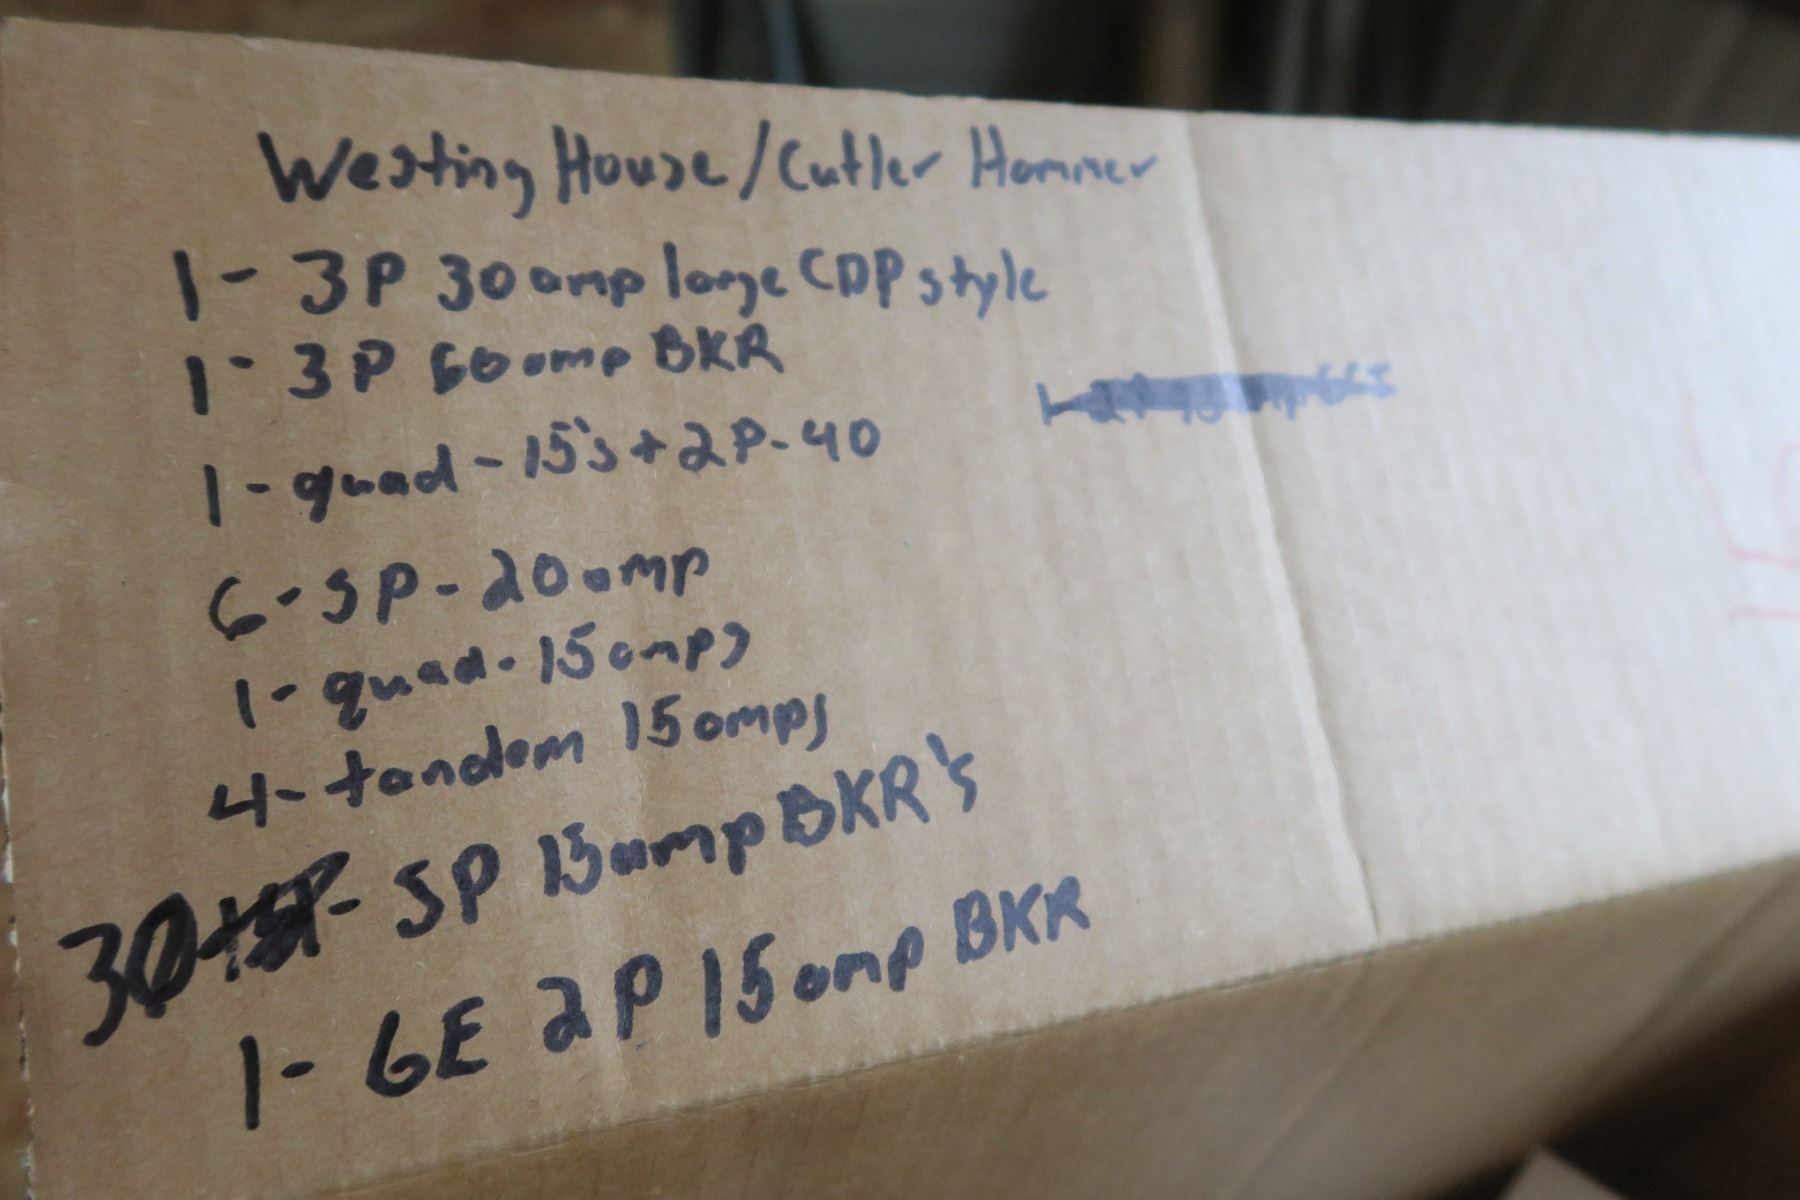 Westing House/Cutler Hammer
1- 3P 30 amp large CDP style
1- 3P 60 amp BKR
1- quad - 15's + 2P-40
6- SP- 20 amp
1- quad- 15 amps
4- tandem 15 amps
30 - SP 15 amp BKR's
1- GE 2P 15 amp BKR